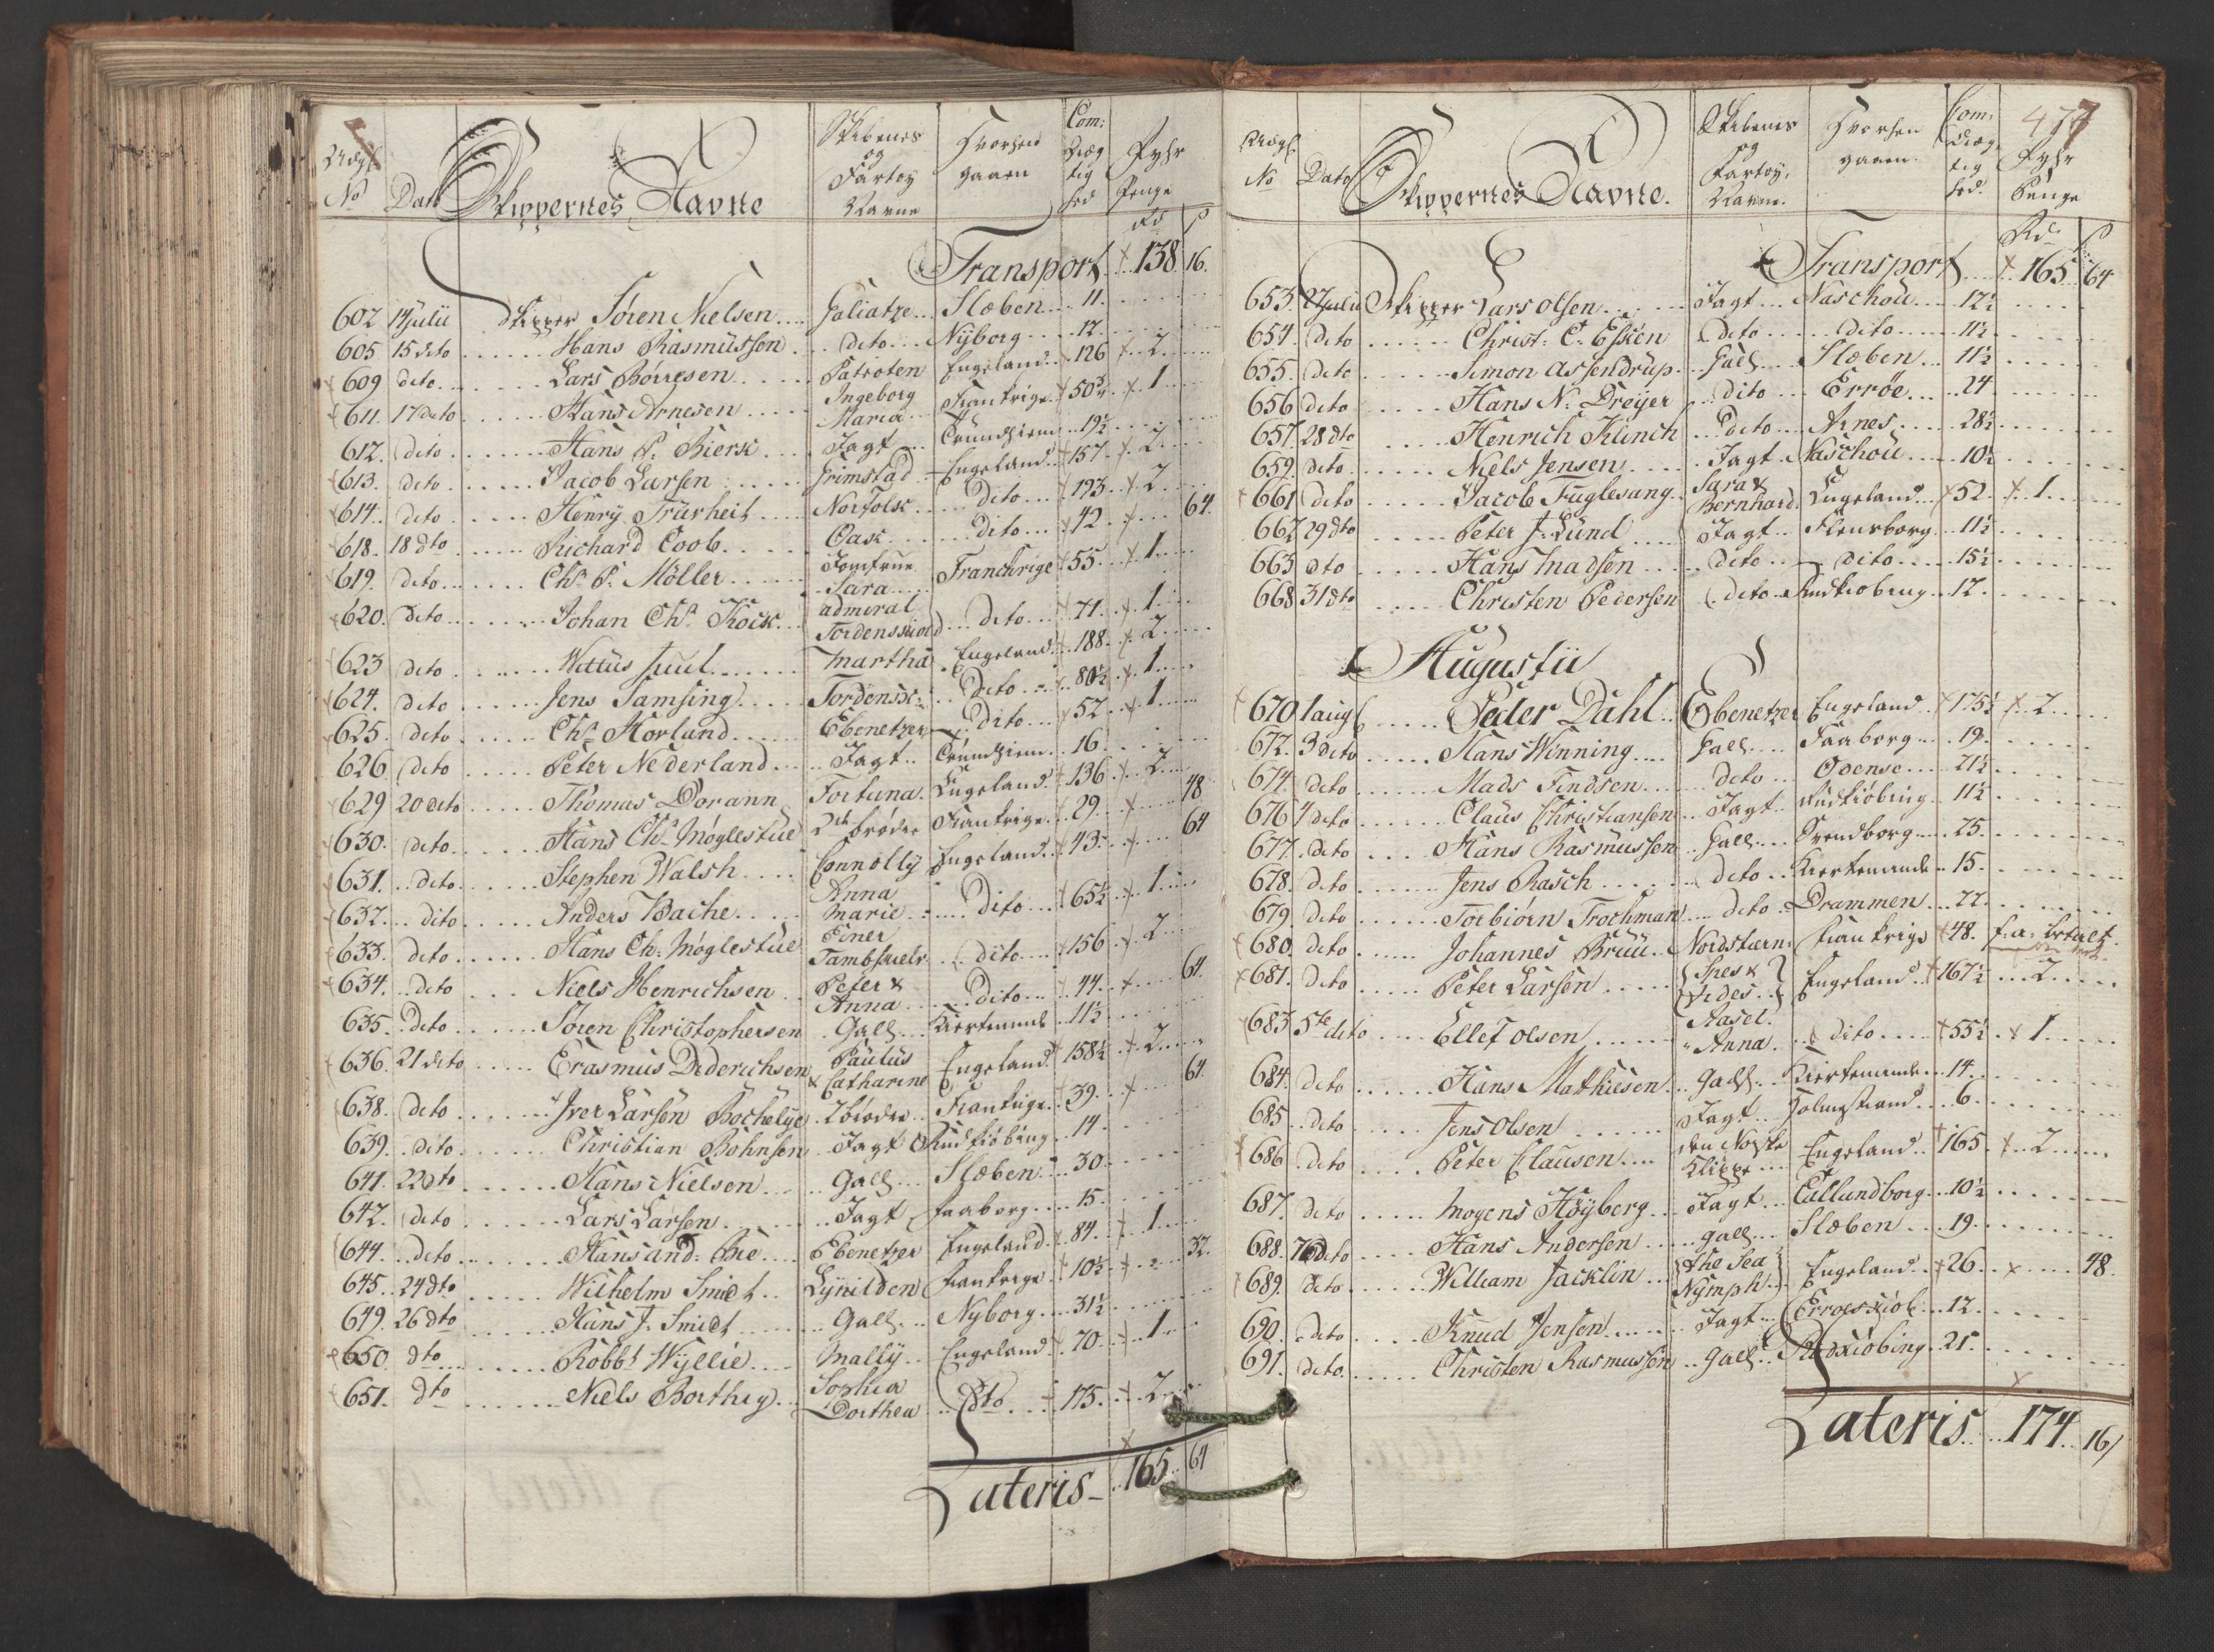 No Dato Skippernes Navne Skibenes og Fartøy Navne Hvorhen gaaen Com: Drægtighed Fyhr Penge
Rd ß
Transport 138 16.
602 14 Julii Skipper Søren Nielsen Galiatze Slæben 11.
605 15 dito Hans Rasmussen dito Nyborg 12
609 dito Lars Børresen Patroten Engeland 126 2
611. 17 dito Hans Arnesen Ingeborg Maria Frankrige 50½ 1
612. dito Hans P. Bierk Jagt Trundhiem 19½
613. dito Jacob Larsen Grimstad Engeland 157 2
614. dito Henry Trürheit Norfolk dito 193 2
618. 18 dto Richard Coob Oak dito 42 64
619. dito Chr. P. Möller Jomfrue Sara Franckrige 55 1
620. dito Johan Chr. Kock admiral Tordenskiold dito 71. 1
623 dito Wittus Juul Martha Engeland 188 2
624. dito Jens Samsing Tordensk: dito 80½ 1
625. dito Chr. Horland Ebenetzer dito 52 1
626 dito Peter Nederland Jagt Trundhiem 16
629 20 dito Thomas Dorann Fortuna Engeland 136 2
630. dito Hans Chr. Møglestue 2de brødre Frankrige 29 48
631. dito Stephen Walsh Connolly Engeland 43 64
632. dito Anders Bache Anna Marie dito 65½ 1
633. dito Hans Ch: Møglestue Einer Tambskielv dito 156 2
634. dito Niels Henrichsen Peter & Anna dito 44 64
635. dito Søren Christophersen Gall: Kierteminde 11½
636. 21 dito Erasmus Dederichsen Paulus & Catharine Engeland 158½ 2
638. dito Iver Larsen Bochelye 2 brødre Frankrige 39. 64
639. dito Christian Bohnsen Jagt Rudkiøbing 14
641. 22 dto Hans Nielsen Gall: Slæben 30
642. dito Lars Larsen Jagt Faaborg 15
644. dito Hans And: Bie Ebenetzer Engeland 84 1
645. 24 dto Wilhelm Smidt Lynilden Frankrige 10½ 32.
649. 26 dto Hans J. Smidt Gall: Nyborg 31½
650 dto Robbt Wyllie Mally Engeland 70 1
651. dto Niels Borthig Sophia Dorthea dto 175. 2
Lateris 165 64
477
No Dato Skippernes Navne. Skibenes og Fartøy Navne. Hvorhen gaaen. Com: Drægtighed. Fyhr Penge
Rd ß
Transport 165 64
653. 27 Julii Skipper Lars Olsen Jagt Naschou 12½
654. dito Christ: C. Esken dito dito 11½
655. dito Simon Assendrup Gall: Slæben 11½
656 dito Hans N. Dreyer dito Errøe 24
657 28 dto Henrich Klinck dito Arnes 28½
659. dito Niels Jensen Jagt Naschou 10½
661 dito Jacob Fuglesang Sara & Bernhard Engeland 52. 1
662 29 dto Peter J. Lund Jagt Flensborg 11½
663 dto Hans Madsen dito dito 15½
668 31 dto Christen Pedersen dito Rudkiobing 12.
Augustii
670 1 aug Peder Dahl Ebenetzer Engeland 175½ 2
672. 3 dito Hans Winning Gall: Faaborg 19.
674. dito Mads Findsen dito Odense 21½
676 4 dito Claus Christiansen Jagt Rudkiøbing 11½
677. dito Hans Rasmussen Gall: Svendborg 25
678. dito Jens Rasch dito Kierteminde 15.
679. dito Torbiørn Trochman dito Drammen 22
680. dito Johannes Bruu Nordstiern: Frankrige 48. f: a: betalt
681. dito Peter Larsen Spes & Fides Engeland 167½ 2
683 5te dito Ellef Olsen Aasel. Anna dito 55½ 1
684. dito Hans Mathiesen Gall: Kierteminde 14
685. dito Jens Olsen Jagt Holmestrand 6
686 dito Peter Clausen den Norske Klippe Engeland 165 2
687. dito Mogens Høyberg Jagt Callundborg 10½
688. 7 dito Hans Andersen gall: Slæben 19.
689. dito William Jacklin the Sea Nymph Engeland 26 48.
690. dito Knud Jensen Jagt Erroeskiøb 12
691. dito Christen Rasmussen Gall: Rudkiöbing 21
Lateris 174 16